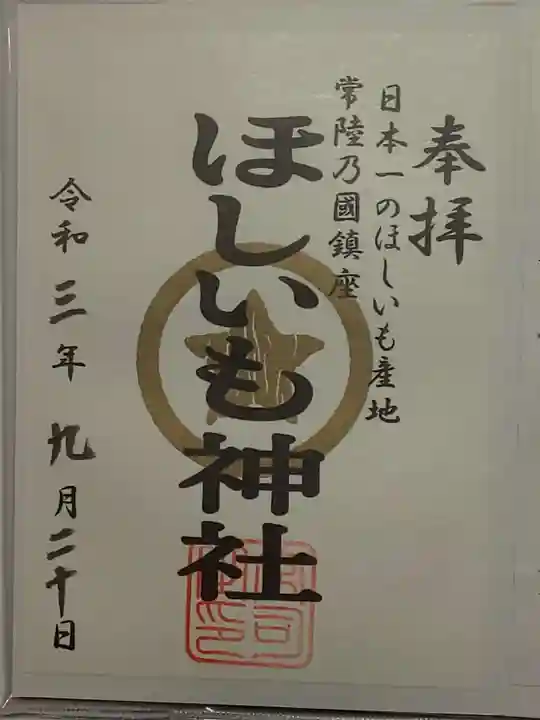 奉拝
日本一のほしいも産地
常陸乃國鎮座
ほしいも神社
令和三年九月二十日